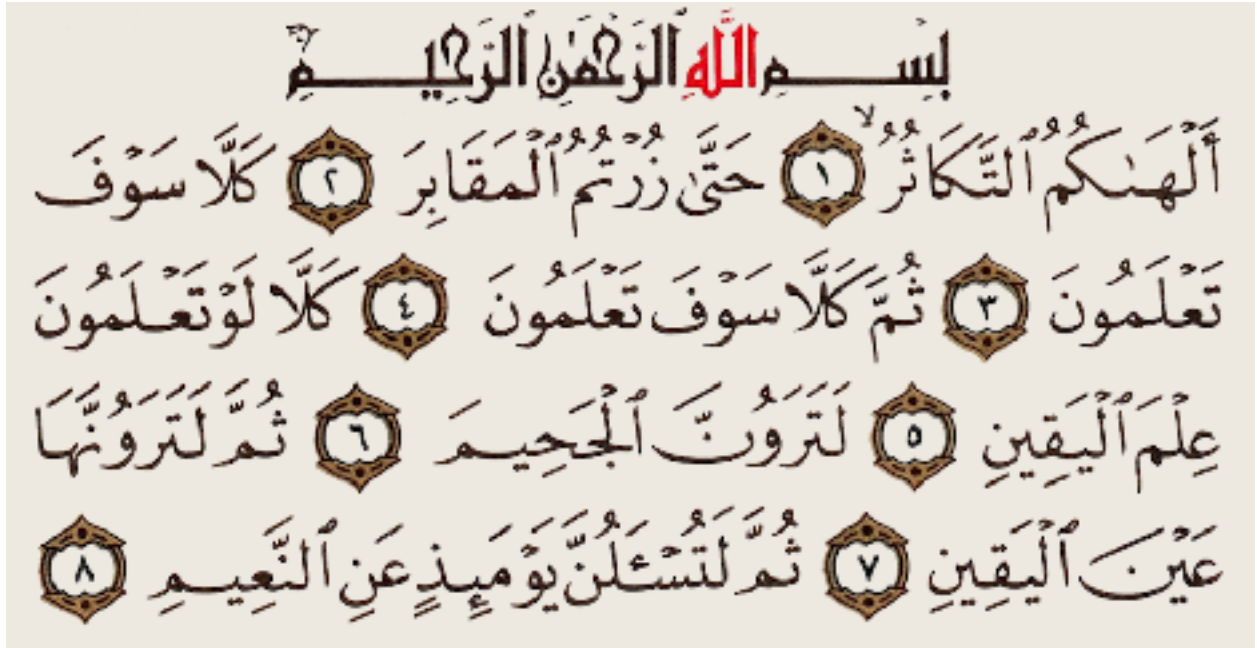 بِسْمِ ٱللَّهِ ٱلرَّحْمَٰنِ ٱلرَّحِيمِ
أَلْهَىٰكُمُ ٱلتَّكَاثُرُ ۙ ١ حَتَّىٰ زُرْتُمُ ٱلْمَقَابِرَ ٢ كَلَّا سَوْفَ
تَعْلَمُونَ ٣ ثُمَّ كَلَّا سَوْفَ تَعْلَمُونَ ٤ كَلَّا لَوْ تَعْلَمُونَ
عِلْمَ ٱلْيَقِينِ ٥ لَتَرَوُنَّ ٱلْجَحِيمَ ٦ ثُمَّ لَتَرَوُنَّهَا
عَيْنَ ٱلْيَقِينِ ٧ ثُمَّ لَتُسْـَٔلُنَّ يَوْمَئِذٍ عَنِ ٱلنَّعِيمِ ٨